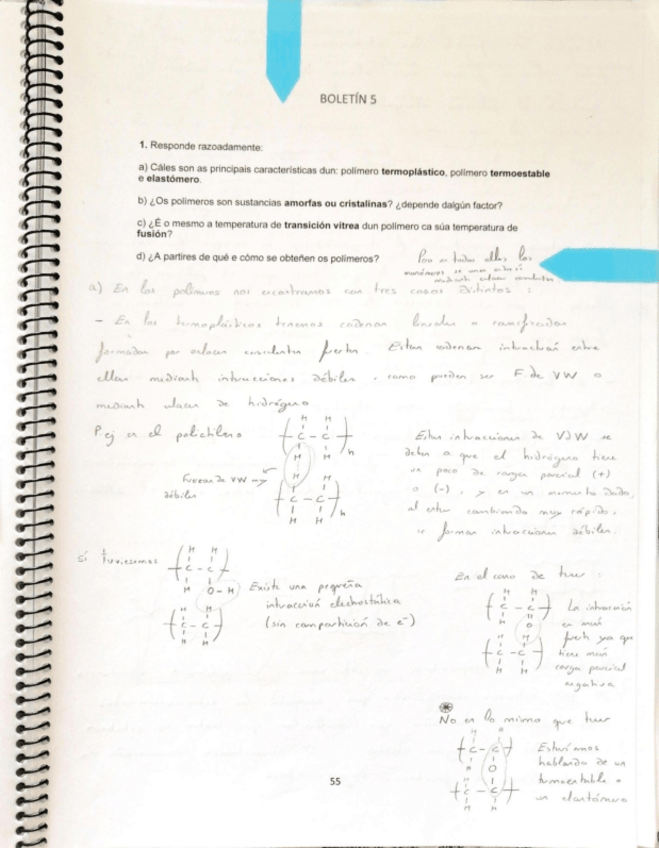 BOLETÍN 5
1. Responde razoadamente:
a) Cáles son as principais características dun: polímero termoplástico, polímero termoestable
e elastómero.
b) ¿Os polímeros son sustancias amorfas ou cristalinas? ¿depende dalgún factor?
c) ¿É o mesmo a temperatura de transición vítrea dun polímero ca súa temperatura de
fusión?
d) ¿A partires de qué e cómo se obteñen os polímeros?
Para todos ellos los
monómeros se unen entre sí
mediante enlaces covalentes
a) En los polímeros nos encontramos con tres casos distintos:
- En los termoplásticos tenemos cadenas lineales o ramificadas
formadas por enlaces covalentes fuertes. Estas cadenas interactúan entre
ellas mediante interacciones débiles, como pueden ser F. de VW o
mediante enlaces de hidrógeno
P.ej en el polietileno
H H
C - C
n
H H
Fuerzas de VW muy
débiles
H H
C - C
n
H H
Estas interacciones de VDW se
deben a que el hidrógeno tiene
un poco de carga parcial (+)
o (-), y en un momento dado,
al estar cambiando muy rápido,
se forman interacciones débiles.
Si tuviesemos
H H
C - C
H O-H
H H
C - C
H H
Existe una pequeña
interacción electrostática
(sin compartición de e-)
En el caso de tener:
H H
C - C
H O
H H
C - C
H H
La interacción
es más
fuerte ya que
tiene más
carga parcial
negativa
No es lo mismo que tener
H H
C - C
H O
H
C - C
H H
Estaríamos
hablando de un
termoestable o
un elastómero
55